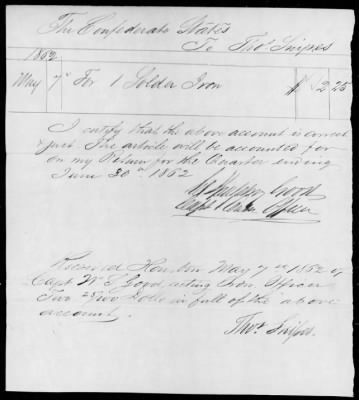 The Confederate States
To Thos Snipes
1862
May 7th For 1 Solder Iron $ 2 25
I certify that the above account is correct
& just. The article will be accounted for
on my Return for the Quarter ending
June 30th 1862
Capt Officer
Received Houston May 7th 1862 of
Capt W S Good, acting Ord. Officer
Two 25/100 Dolls in full of the above
account.
Thos Snipes.